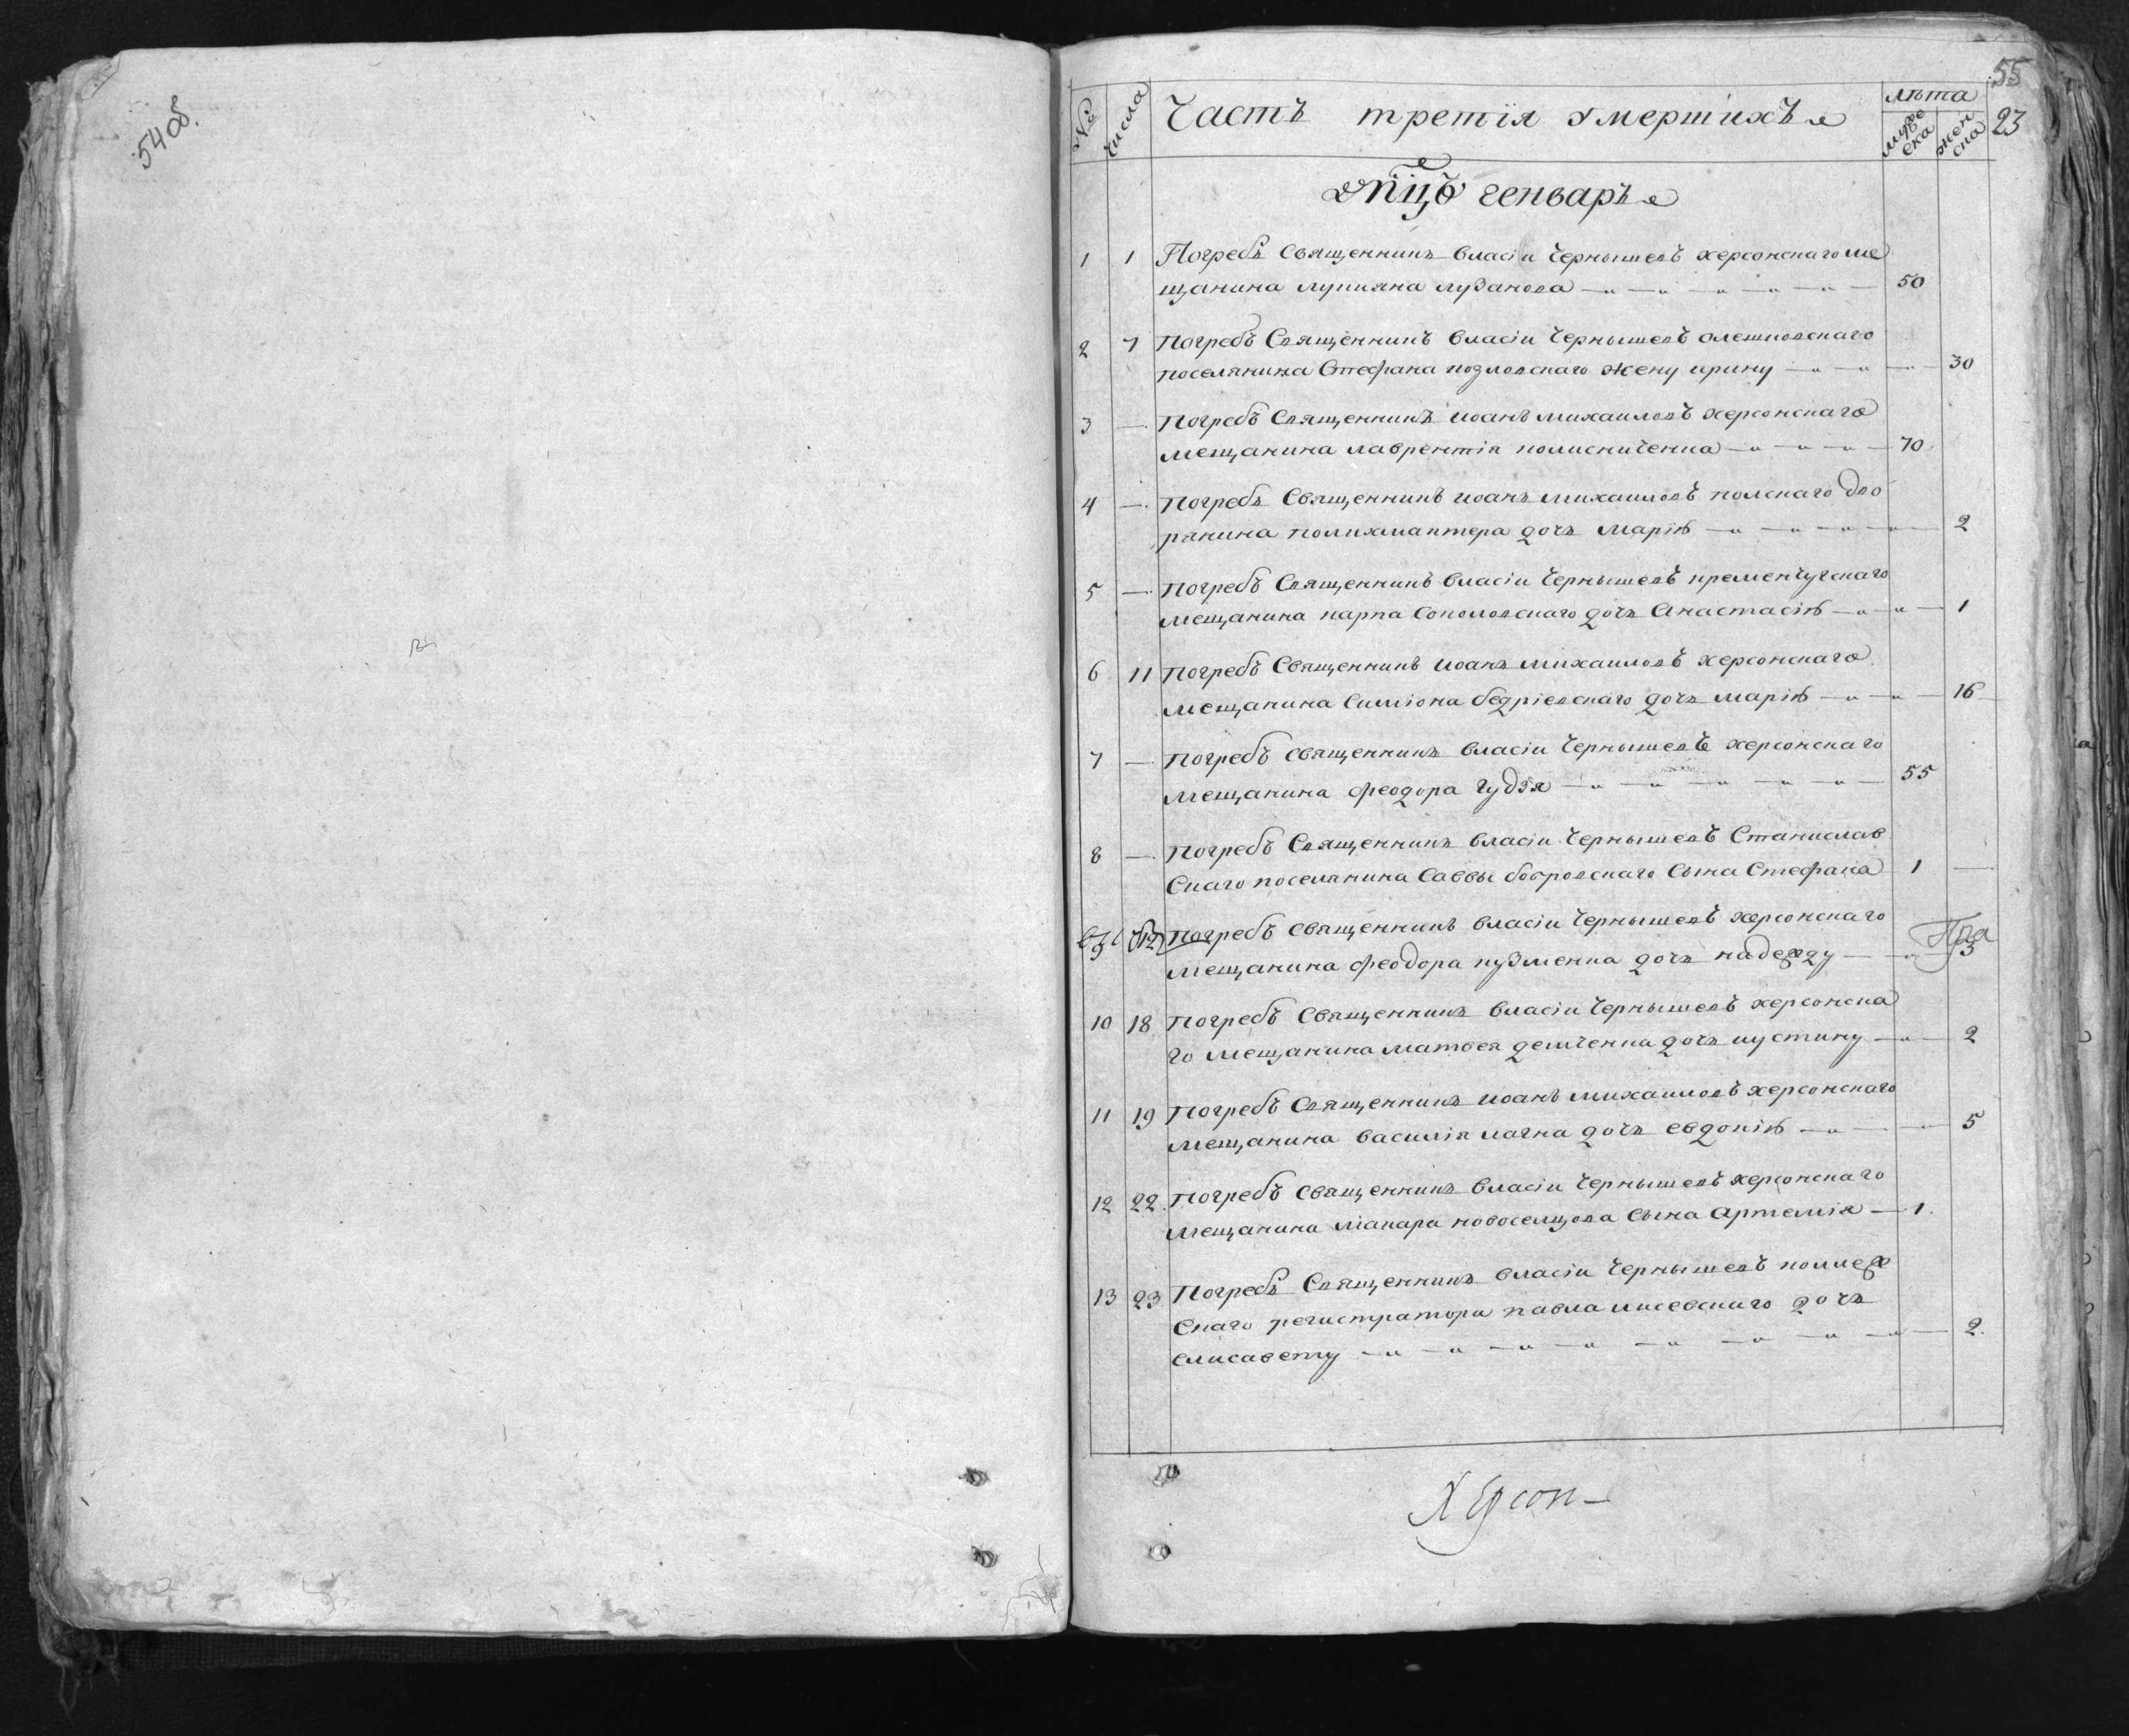 54 об.
55
23
№ числа Часть третія умершихъ лѣта
мужеска женска
мцъ генварь
1 1 Погребъ Священникъ Власіи Чернышевъ херсонскаго ме
щанина лукияна лузанова 50
2 7 Погребъ Священникъ Власіи Чернышевъ олешковскаго
поселянина Стефана козловскаго жену ирину 30
3 — Погребъ Священникъ иоанъ михаиловъ херсонскаго
мещанина лаврентія колисниченка 70
4 — Погребъ Священникъ иоанъ михаиловъ полскаго дво
рянина дочь марію 2
5 — Погребъ Священникъ Власіи Чернышевъ кременчугскаго
мещанина карпа Соколовскаго дочь Анастасію 1
6 11 Погребъ Священникъ иоанъ михаиловъ херсонскаго
мещанина Симіона бедріевскаго дочь марію 16
7 — Погребъ священникъ Власіи Чернышевъ херсонскаго
мещанина феодора 55
8 — Погребъ Священникъ Власіи Чернышевъ Станислав
Скаго поселянина Саввы бобровскаго Сына Стефана 1 —
9 12 Погребъ Священникъ Власіи Чернышевъ херсонскаго
мещанина феодора кузменка дочь надежду 3
10 18 Погребъ Священникъ Власіи Чернышевъ херсонска
го мещанина матвея демченка дочь иустину 2
11 19 Погребъ Священникъ иоанъ михаиловъ херсонскаго
мещанина василія дочь евдокію 5
12 22 Погребъ Священникъ Власіи Чернышевъ херсонскаго
мещанина макара новоселцова Сына Артемія 1
13 23 Погребъ Священникъ Власіи Чернышевъ коллеж
Скаго регистратора павла лисевскаго дочь
елисавету 2
Херсон